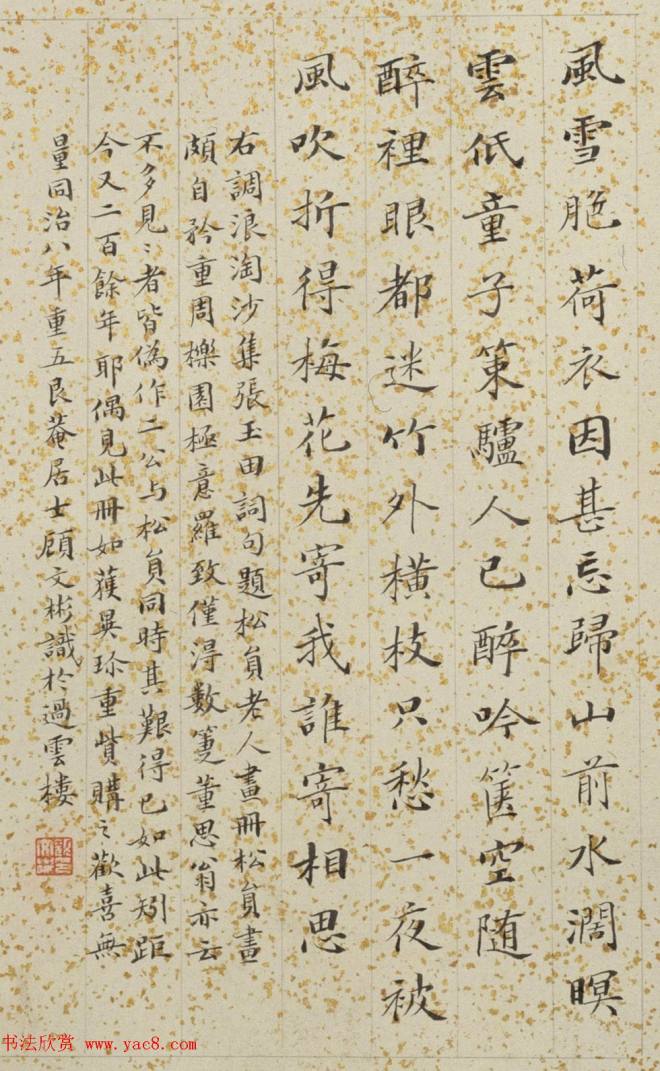 風雪脃荷衣因甚忘歸山前水濶暝
雲低童子策驢人已醉吟篋空随
醉裡眼都迷竹外橫枝只愁一夜被
風吹折得梅花先寄我誰寄相思
右調浪淘沙集張玉田詞句題松負老人畫冊松負畫
頗自矜重周櫟園極意羅致僅淂數箑董思翁亦云
不多見〻者皆偽作二公与松負同時其艱得已如此矧距
今又二百餘年耶偶見此冊如獲異珍重貲購之歡喜無
量同治八年重五艮菴居士顾文彬識於過雲樓
书法欣赏 www.yac8.com